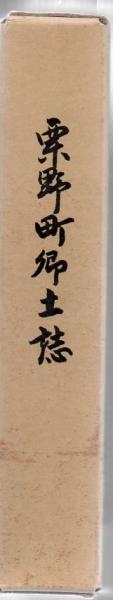 栗野町郷土誌